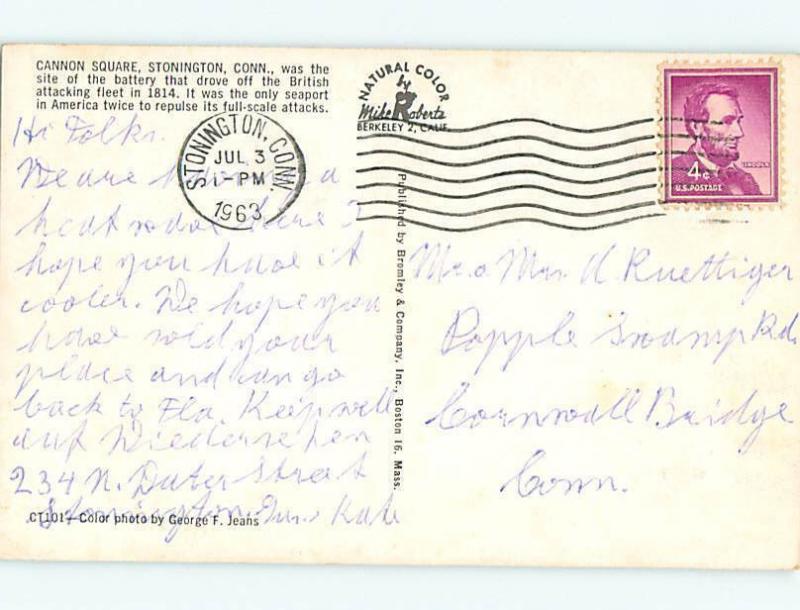 CANNON SQUARE, STONINGTON, CONN., was the
site of the battery that drove off the British
attacking fleet in 1814. It was the only seaport
in America twice to repulse its full-scale attacks.
Hi Folks.
We are a
heat here I
hope you have it
cooler. We hope you
have sold your
place and can go
back to Fla Keep well
auf Wiedersehen
234 N. Water Street
Stonington Kate
CT101—Color photo by George F. Jeans
STONINGTON, CONN.
JUL 3
1-PM
1963
NATURAL COLOR
by
Mike Roberts
BERKELEY 2, CALIF.
Published by Bromley & Company, Inc., Boston 16, Mass.
LINCOLN
4¢
U.S. POSTAGE
Mr. & Mrs Ruettiger
Popple Swamp Rd.
Cornwall Bridge
Conn.